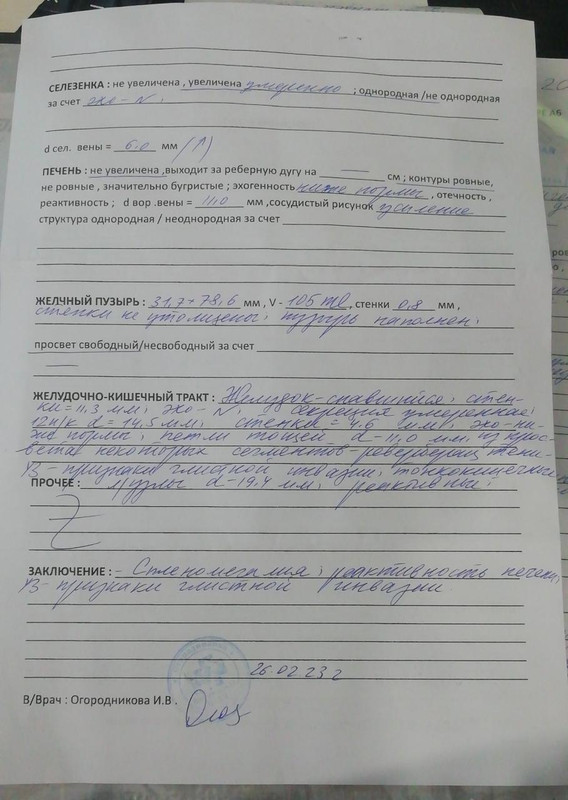 СЕЛЕЗЕНКА : не увеличена , увеличена умеренно ; однородная /не однородная
за счет эхо-N.
d сел. вены = 6,0 мм (↑)
ПЕЧЕНЬ : не увеличена ,выходит за реберную дугу на — см ; контуры ровные,
не ровные , значительно бугристые ; эхогенность ниже нормы , отечность ,
реактивность ; d вор .вены = 11,0 мм ,сосудистый рисунок усиление
структура однородная / неоднородная за счет
ЖЕЛЧНЫЙ ПУЗЫРЬ : 31,7+78,6 мм , V - 105 ml , стенки 0,8 мм ,
стенки не утолщены, пузырь наполнен,
просвет свободный/несвободный за счет
—
ЖЕЛУДОЧНО-КИШЕЧНЫЙ ТРАКТ : Желудок-спавшийся, стен-
ки=11,3 мм, эхо-N, секреция умеренная,
12п/к d=14,5мм, стенки=4,6 мм, эхо-ни-
же нормы, петли тощей d-11,0 мм, из прос-
вета некоторых сегментов-реверберац. тени-
УЗ-признаки глистной инвазии, тонкокишечные
ПРОЧЕЕ : л/узлы d-19,4 мм, реактивные,
ЗАКЛЮЧЕНИЕ : - Спленомегалия, реактивность печени,
УЗ-признаки глистной инвазии
26.02 23 г
В/Врач : Огородникова И.В .